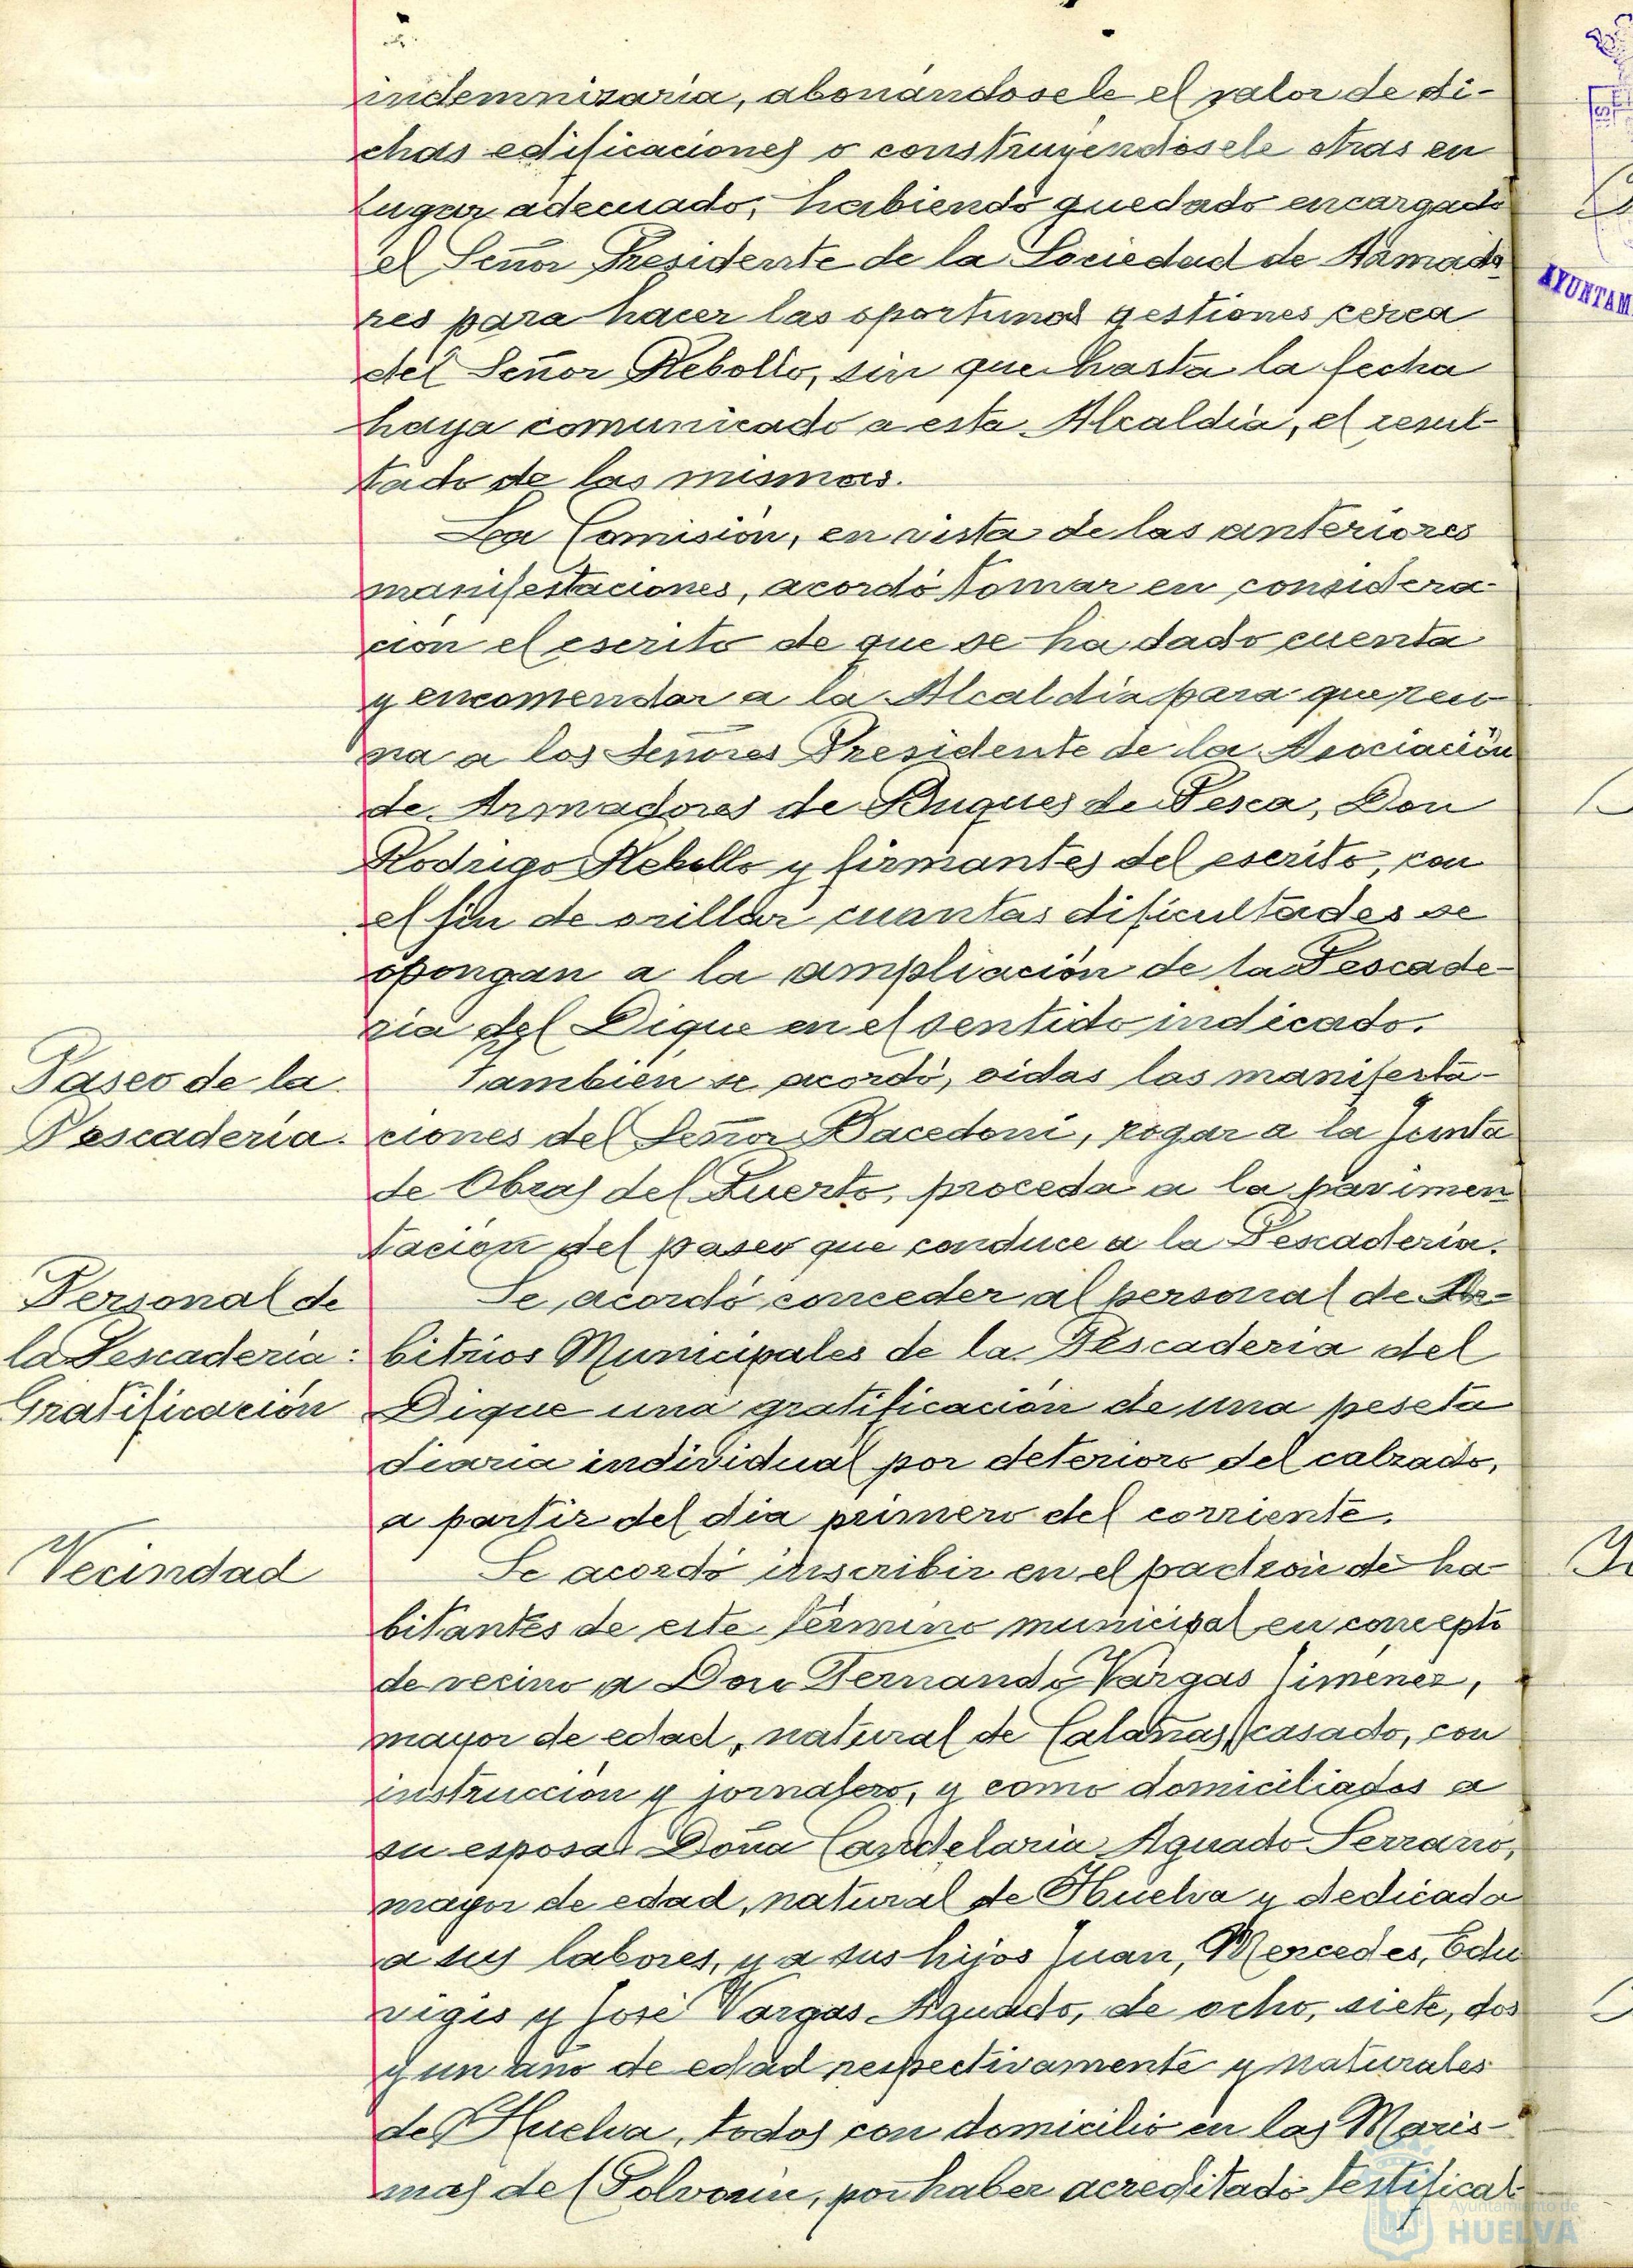 indemnizaría, abonándosele el valor de di-
chas edificaciones o construyéndosele otras en
lugar adecuado, habiendo quedado encargado
el Señor Presidente de la Sociedad de Armado
res para hacer las oportunas gestiones cerca
del Señor Rebollo, sin que hasta la fecha
haya comunicado a esta Alcaldía, el resul-
tado de las mismas.
La Comisión, en vista de las anteriores
manifestaciones, acordó tomar en considera-
ción el escrito de que se ha dado cuenta
y encomendar a la Alcaldía para que reu-
na a los Señores Presidente de la Asociación
de Armadores de Buques de Pesca, Don
Rodrigo Rebollo y firmantes del escrito, con
el fin de orillar cuantas dificultades se
opongan a la ampliación de la Pescade-
ría del Dique en el sentido indicado.
Paseo de la
Pescadería.
También se acordó, oidas las manifesta-
ciones del Señor Bacedoni, rogar a la Junta
de Obras del Puerto, proceda a la pavimen
tación del paseo que conduce a la Pescadería.
Personal de
la Pescadería:
Gratificación
Se acordó conceder al personal de Ar-
bitrios Municipales de la Pescadería del
Dique una gratificación de una peseta
diaria individual por deterioro del calzado,
a partir del día primero del corriente.
Vecindad
Se acordó inscribir en el padrón de ha-
bitantes de este término municipal en concepto
de vecino a Don Fernando Vargas Jiménez,
mayor de edad, natural de Calañas, casado, con
instrucción y jornalero, y como domiciliados a
su esposa Doña Candelaria Aguado Serrano,
mayor de edad, natural de Huelva y dedicada
a sus labores, y a sus hijos Juan, Mercedes, Edu
vigis y José Vargas Aguado, de ocho, siete, dos
y un año de edad respectivamente y naturales
de Huelva, todos con domicilio en las Maris-
mas del Polvorín, por haber acreditado testifical
AYUNTAM
Ayuntamiento de
HUELVA